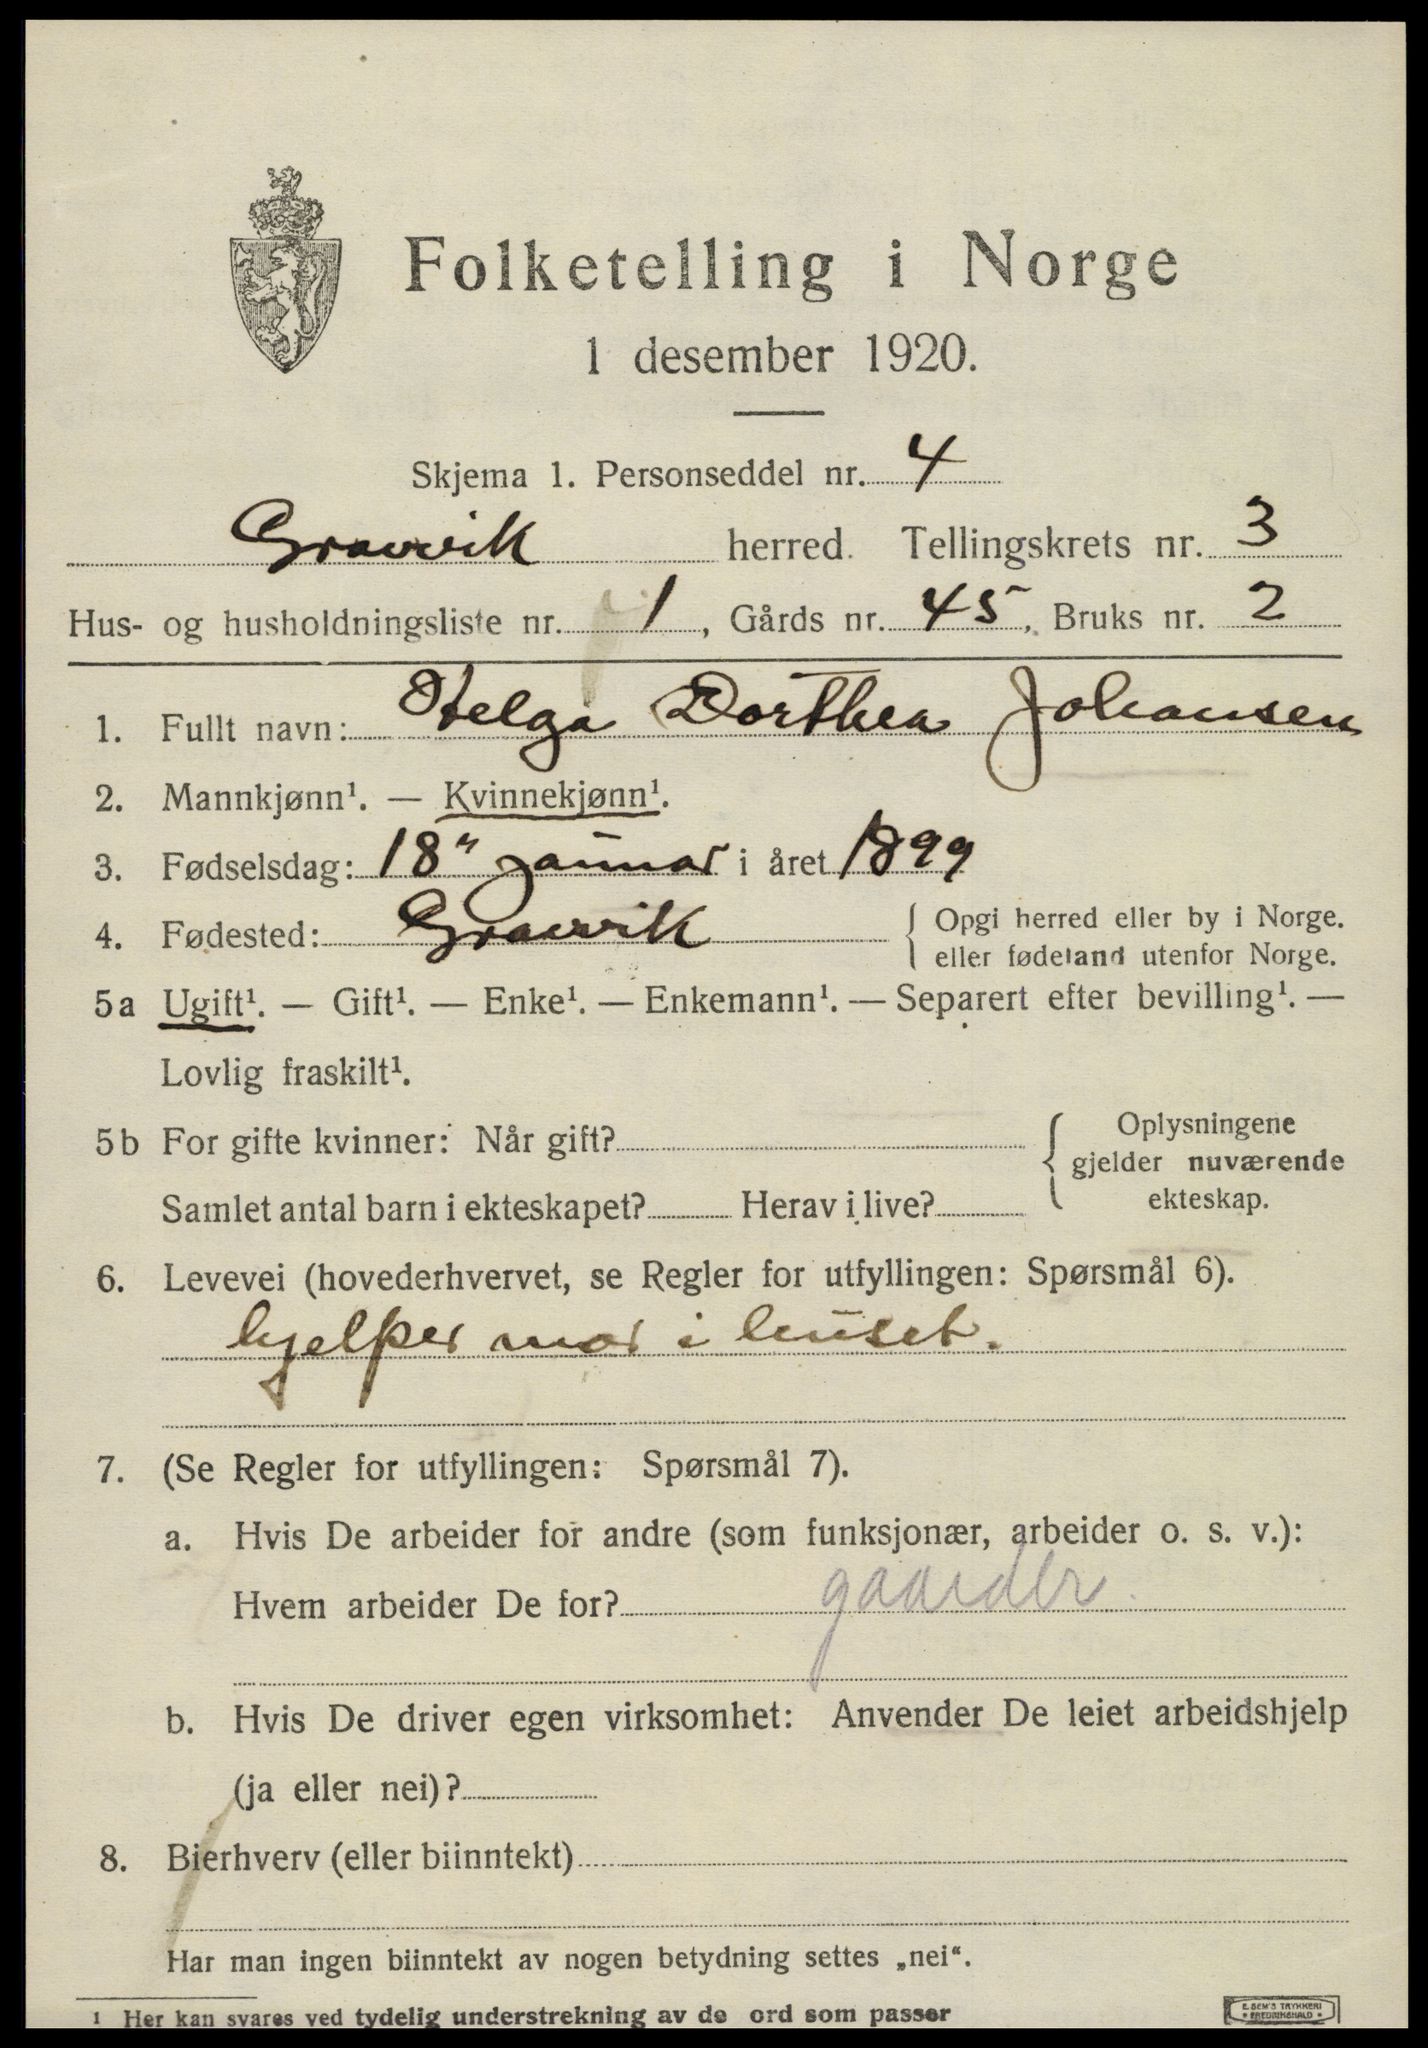 Folketelling i Norge
1 desember 1920.
Skjema 1. Personseddel nr. 4
Gravvik herred. Tellingskrets nr. 3
Hus- og husholdningsliste nr. 1, Gårds nr. 45, Bruks nr. 2
1. Fullt navn: Helga Dorthea Johansen
2. Mannkjønn¹. — Kvinnekjønn¹.
3. Fødselsdag: 18" januar i året 1899
4. Fødested: Gravvik { Opgi herred eller by i Norge.
eller fødeland utenfor Norge.
5a Ugift¹. — Gift¹. — Enke¹. — Enkemann¹. — Separert efter bevilling¹. —
Lovlig fraskilt¹.
5b For gifte kvinner: Når gift? { Oplysningene
gjelder nuværende
Samlet antal barn i ekteskapet? Herav i live? ekteskap.
6. Levevei (hovederhvervet, se Regler for utfyllingen: Spørsmål 6).
hjelper mor i huset.
7. (Se Regler for utfyllingen: Spørsmål 7).
a. Hvis De arbeider for andre (som funksjonær, arbeider o. s. v.):
Hvem arbeider De for? gaarder
b. Hvis De driver egen virksomhet: Anvender De leiet arbeidshjelp
(ja eller nei)?
8. Bierhverv (eller biinntekt)
Har man ingen biinntekt av nogen betydning settes „nei“.
1 Her kan svares ved tydelig understrekning av de ord som passer
E. SEM'S TRYKKERI
FREDRIKSHALD